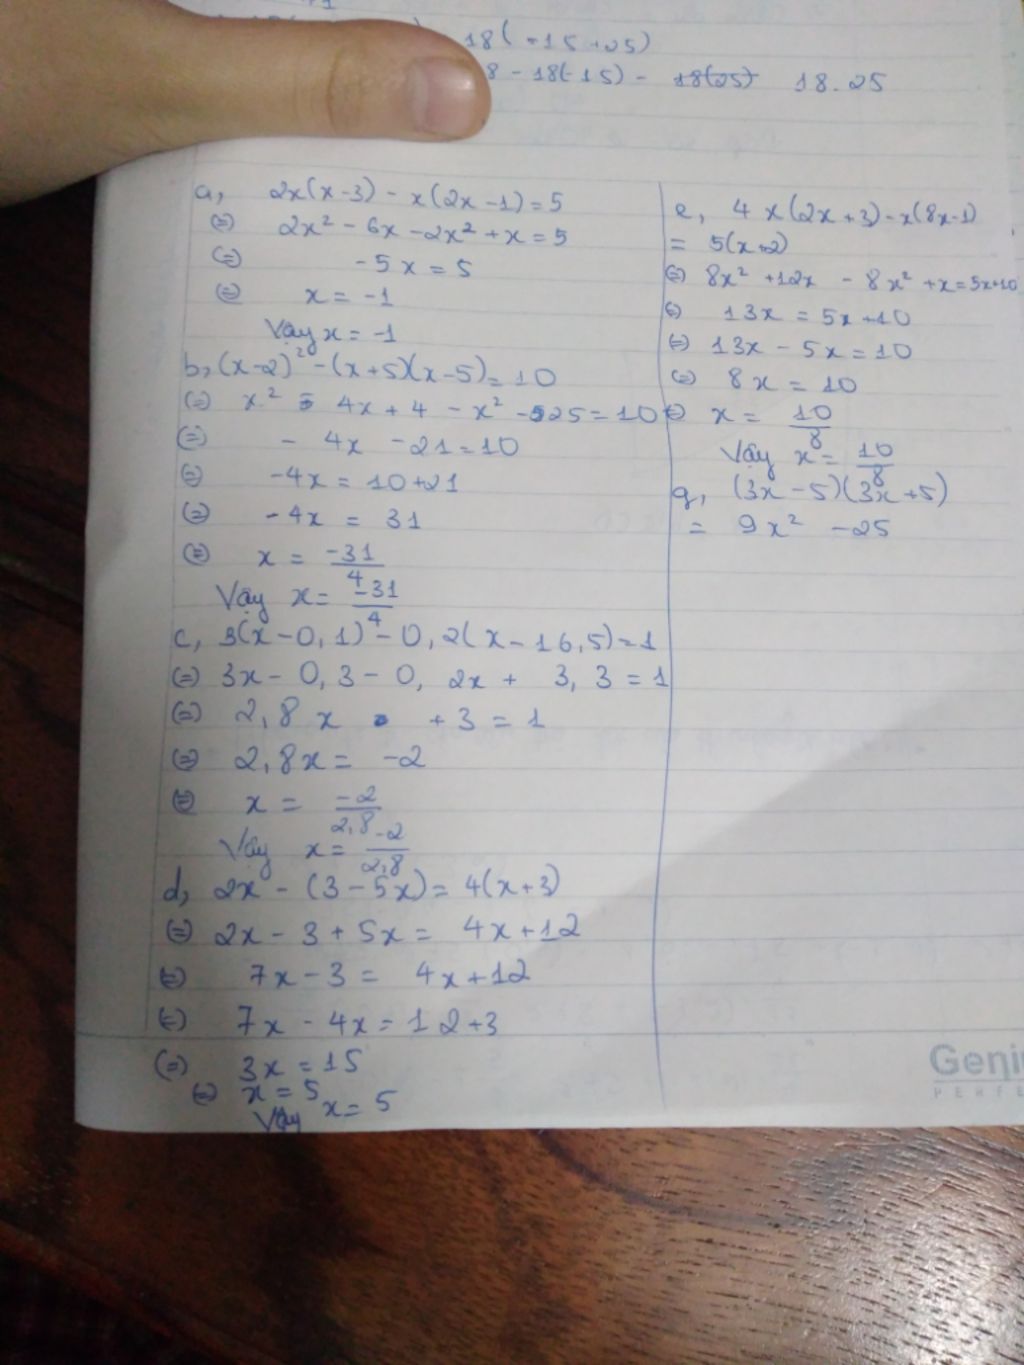 18(-15+25)
8 - 18(-15) - 18(25) 18.25
a, 2x(x-3) - x(2x-1)=5
(=) 2x² - 6x - 2x² + x = 5
(=) -5x = 5
(=) x = -1
Vậy x = -1
b, (x-2)² - (x+5)(x-5) = 10
(=) x² - 4x + 4 - x² - 25 = 10
(=) - 4x - 21 = 10
(=) -4x = 10+21
(=) -4x = 31
(=) x = -31/4
Vậy x = -31/4
c, 3(x-0,1) - 0,2(x-16,5)=1
(=) 3x - 0,3 - 0,2x + 3,3 = 1
(=) 2,8x + 3 = 1
(=) 2,8x = -2
(=) x = -2/2,8
Vậy x = -2/2,8
d, 2x - (3-5x) = 4(x+3)
(=) 2x - 3 + 5x = 4x+12
(=) 7x - 3 = 4x+12
(=) 7x - 4x = 12+3
(=) 3x = 15
(=) x = 5
Vậy x = 5
e, 4x(2x+3) - x(8x-1)
= 5(x+2)
(=) 8x² + 12x - 8x² + x = 5x+10
(=) 13x = 5x+10
(=) 13x - 5x = 10
(=) 8x = 10
(=) x = 10/8
Vậy x = 10/8
g, (3x-5)(3x+5)
= 9x² - 25